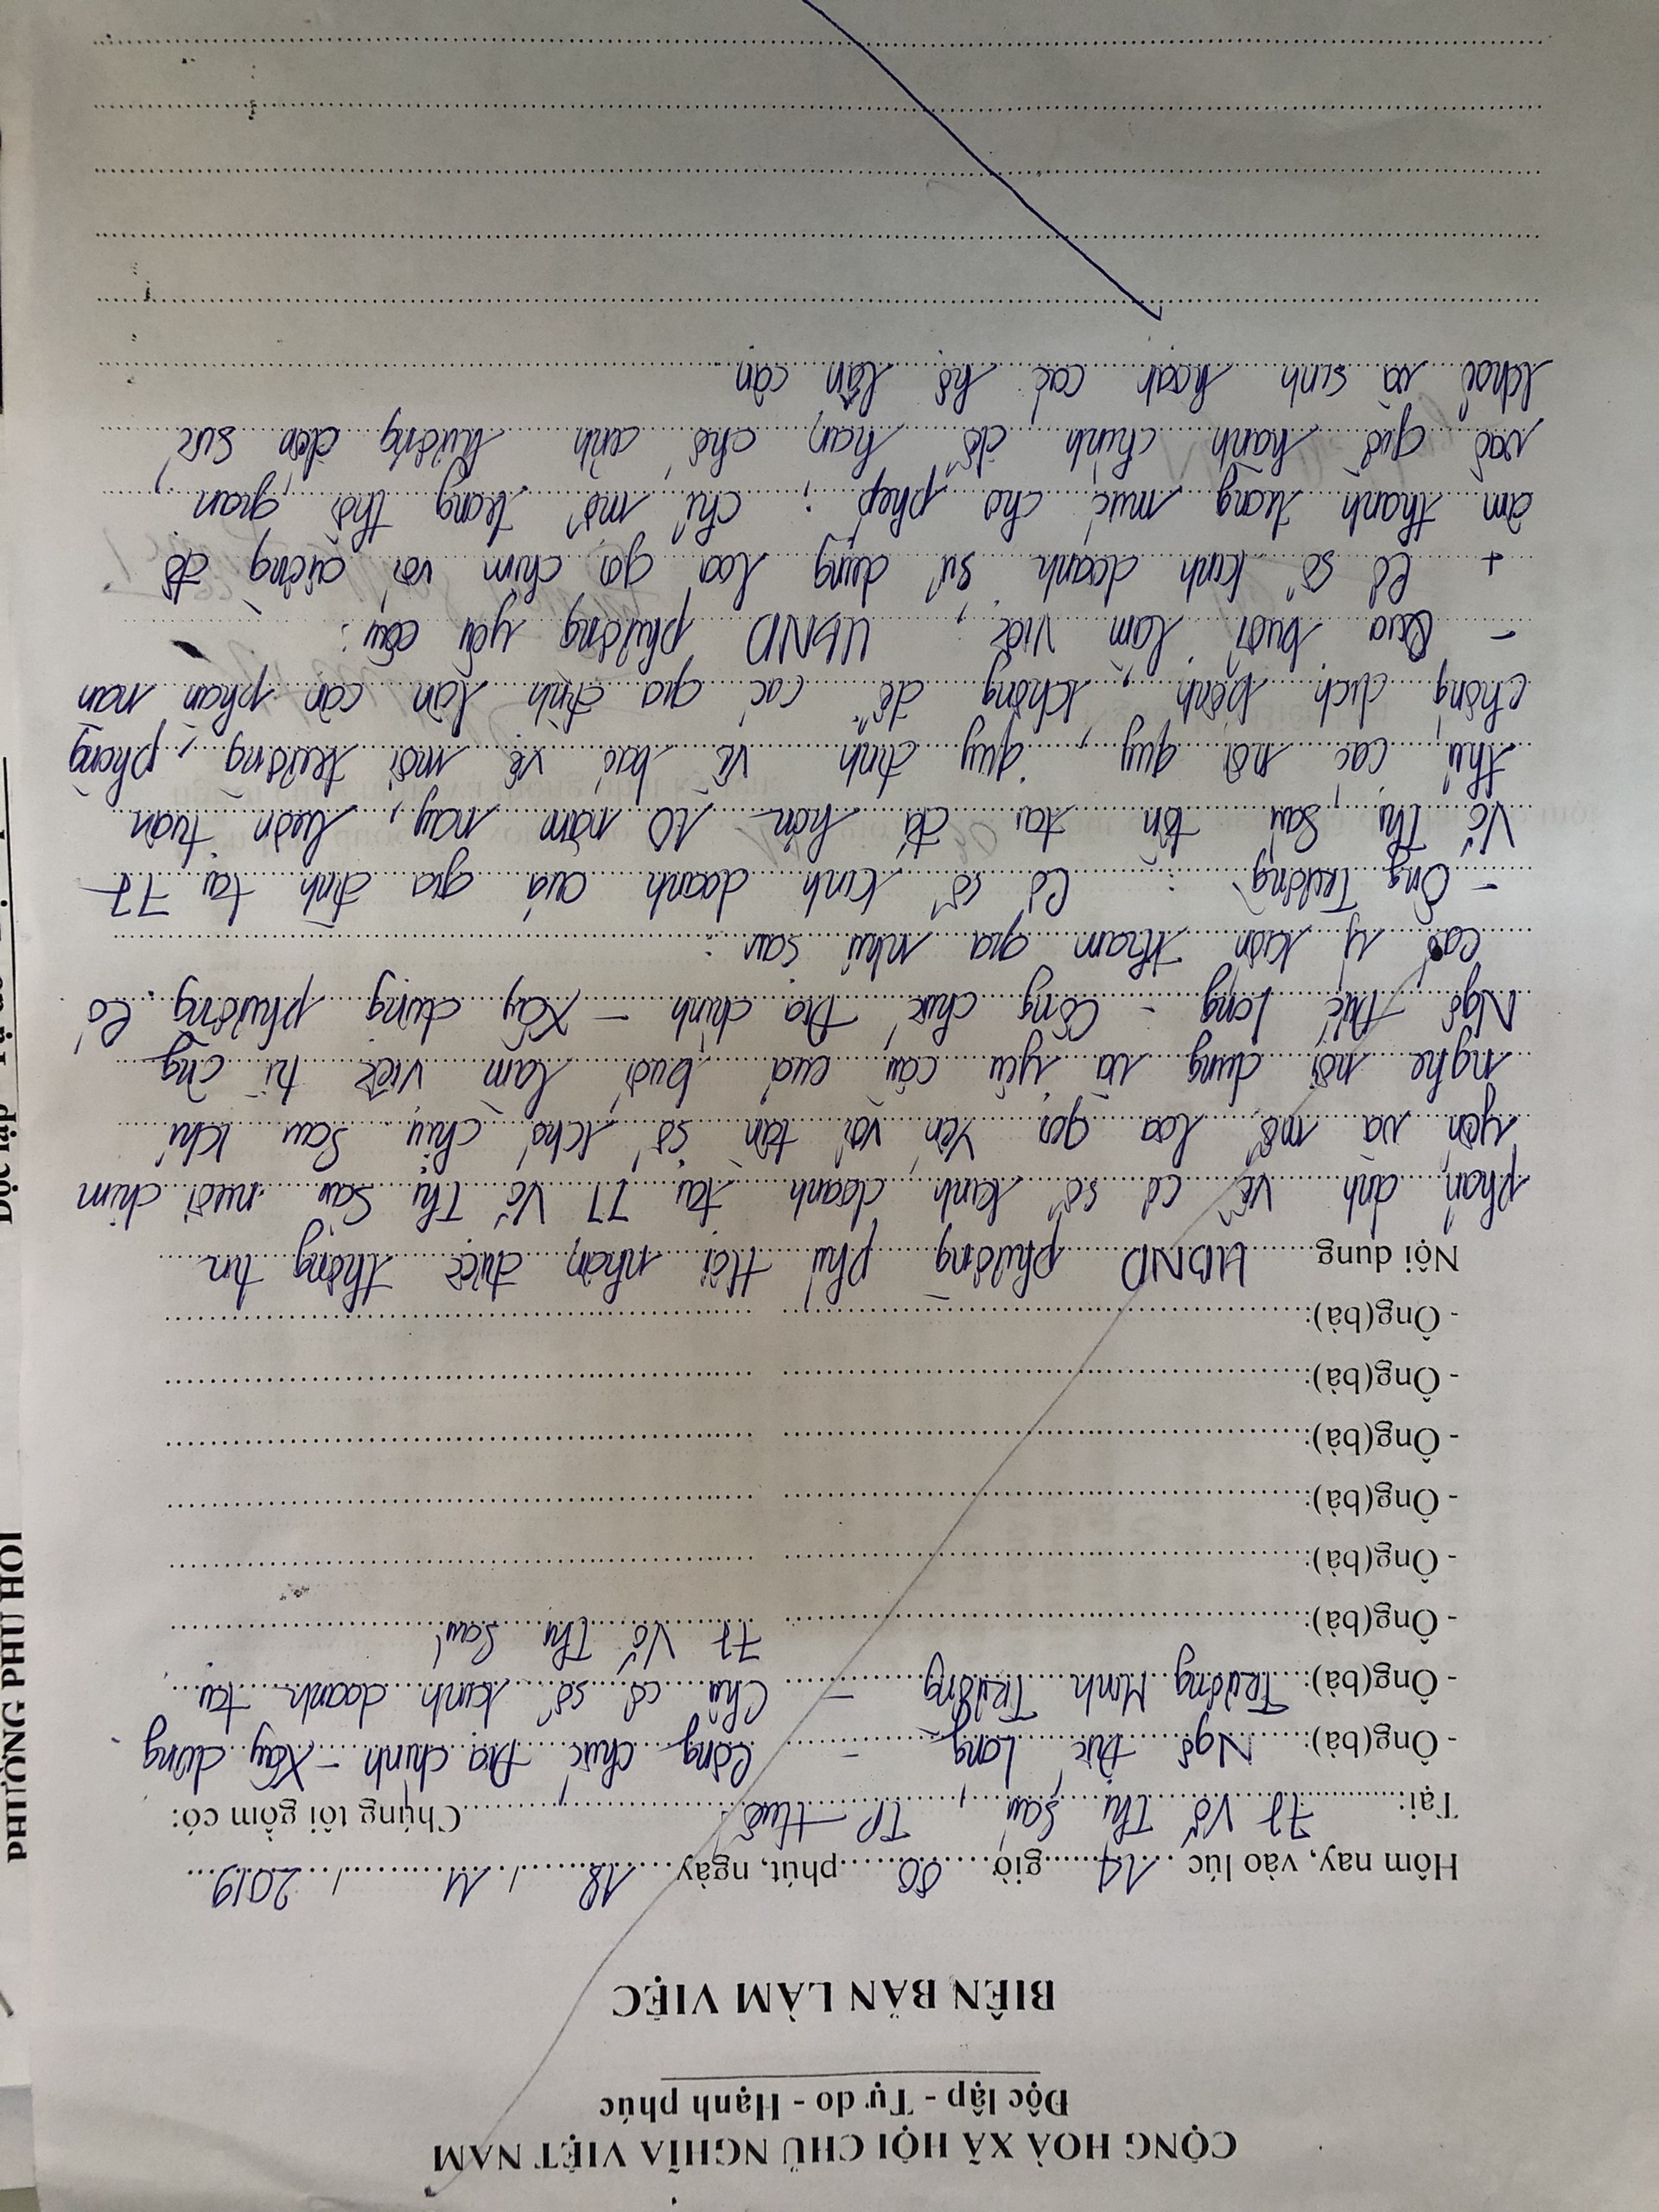 CỘNG HOÀ XÃ HỘI CHỦ NGHĨA VIỆT NAM
Độc lập - Tự do - Hạnh phúc
BIÊN BẢN LÀM VIỆC
Hôm nay, vào lúc 14 giờ 00 phút, ngày 18 / 11 / 2019
Tại: 77 Võ Thị Sáu, TP Huế Chúng tôi gồm có:
- Ông(bà): Ngô Đức Long - Công chức Địa chính - Xây dựng
- Ông(bà): Trương Minh Trường - Chủ cơ sở kinh doanh tại
77 Võ Thị Sáu
- Ông(bà):
- Ông(bà):
- Ông(bà):
- Ông(bà):
- Ông(bà):
- Ông(bà):
Nội dung UBND phường Phú Hội nhận được thông tin
phản ánh về cơ sở kinh doanh tại 77 Võ Thị Sáu nuôi chim
yến và mở loa gọi yến với tần số khó chịu. Sau khi
nghe nội dung và yêu cầu của buổi làm việc từ ông
Ngô Đức Long - Công chức Địa chính - Xây dựng phường. Có
các ý kiến tham gia như sau:
- Ông Trường: Cơ sở kinh doanh của gia đình tại 77
Võ Thị Sáu tồn tại đã hơn 10 năm nay, luôn tuân
thủ các nội quy, quy định về bảo vệ môi trường, phòng
chống dịch bệnh, không để các gia đình lân cận phàn nàn
- Qua buổi làm việc, UBND phường yêu cầu:
+ Cơ sở kinh doanh sử dụng loa gọi chim với cường độ
âm thanh trong mức cho phép; chỉ mở trong thời gian
vào giờ hành chính để hạn chế ảnh hưởng đến sức
khoẻ và sinh hoạt các hộ lân cận
PHƯỜNG PHÚ HỘI
Độc lập